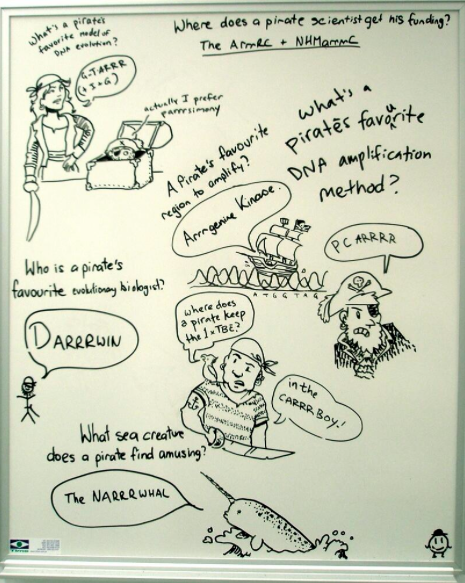 What's a pirate's
favorite model of
DNA evolution?
G-TARRR
(+I+G)
actually I prefer
parrrsimony
Where does a pirate scientist get his funding?
The ArrrRC + NHMarrrC
A Pirate's favourite
region to amplify?
Arrrgenine Kinase.
What's a
Pirate's favourite
DNA amplification
method?
PCARRRR
ATGGTAG
Who is a pirate's
favourite evolutionary biologist?
DARRRWIN
Where does
a pirate keep
the 1xTBE?
in the
CARRRBOY!
What sea creature
does a pirate find amusing?
The NARRRWHAL